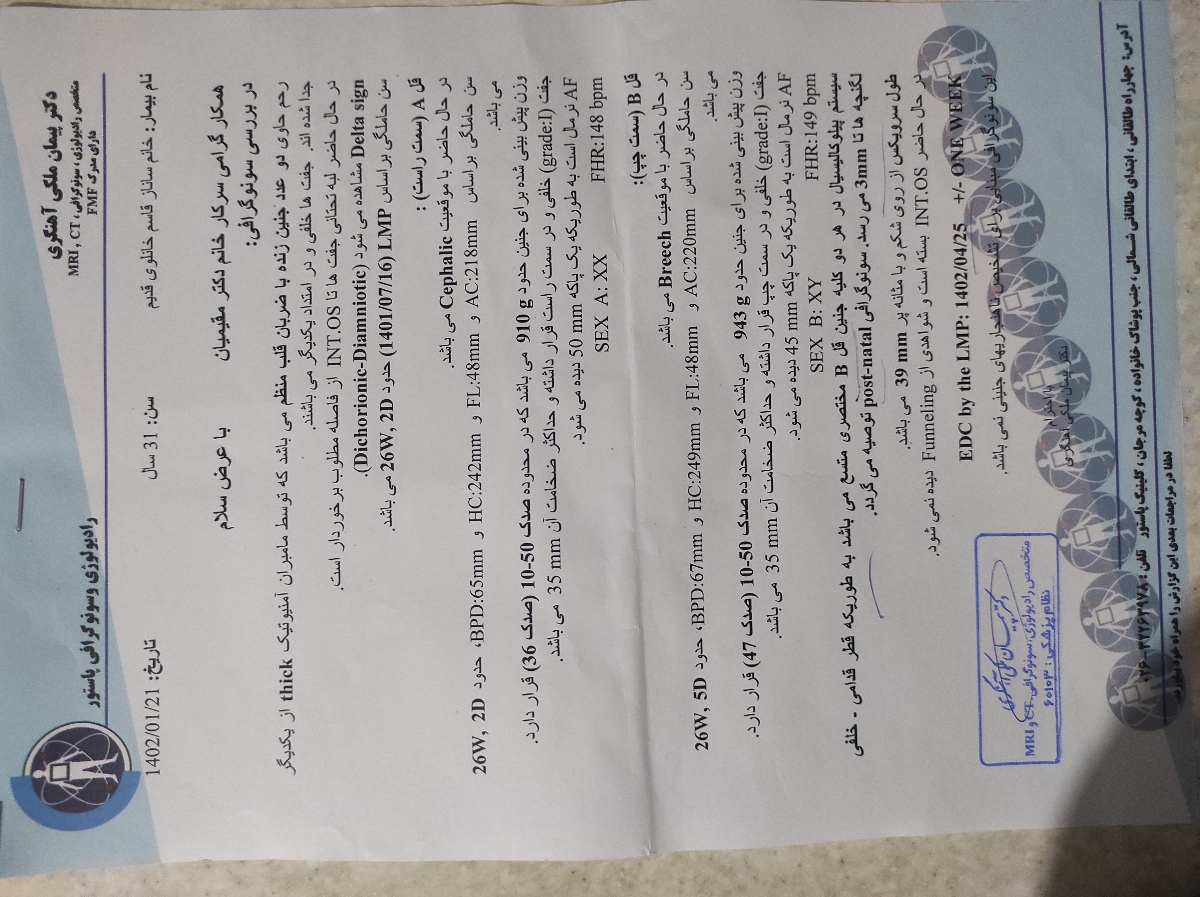 رادیولوژی و سونوگرافی پاستور
دکتر پیمان ملکی آهنگری
متخصص رادیولوژی، سونوگرافی، MRI, CT
دارای مدرک FMF
نام بیمار: خانم ساناز قاسم خانلوی قدیم
سن: 31 سال
تاریخ: 1402/01/21
همکار گرامی سرکار خانم دکتر مقیمیان
با عرض سلام
در بررسی سونوگرافی:
رحم حاوی دو عدد جنین زنده با ضربان قلب منظم می باشد که توسط مامبران آمنیوتیک thick از یکدیگر
جدا شده اند. جفت ها خلفی و در امتداد یکدیگر می باشند.
در حال حاضر لبه تحتانی جفت ها تا INT.OS از فاصله مطلوب برخوردار است.
Delta sign مشاهده می شود (Dichorionic-Diamniotic).
سن حاملگی براساس LMP (1401/07/16) حدود 26W, 2D می باشد.
قل A (سمت راست) :
در حال حاضر با موقعیت Cephalic می باشد.
سن حاملگی براساس AC:218mm و FL:48mm و HC:242mm و BPD:65mm، حدود 26W, 2D
می باشد.
وزن پیش بینی شده برای جنین حدود 910 g می باشد که در محدوده صدک 50-10 (صدک 36) قرار دارد.
جفت (grade:I) خلفی و در سمت راست قرار داشته و حداکثر ضخامت آن 35 mm می باشد.
AF نرمال است به طوریکه یک پاکه 50 mm دیده می شود.
FHR:148 bpm SEX A: XX
قل B (سمت چپ):
در حال حاضر با موقعیت Breech می باشد.
سن حاملگی براساس AC:220mm و FL:48mm و HC:249mm و BPD:67mm، حدود 26W, 5D
می باشد
وزن پیش بینی شده برای جنین حدود 943 g می باشد که در محدوده صدک 50-10 (صدک 47) قرار دارد.
جفت (grade:I) خلفی و در سمت چپ قرار داشته و حداکثر ضخامت آن 35 mm می باشد.
AF نرمال است به طوریکه یک پاکه 45 mm دیده می شود.
FHR:149 bpm SEX B: XY
سیستم پیلوکالیسیال در هر دو کلیه جنین قل B مختصری متسع می باشد به طوریکه قطر قدامی - خلفی
لگنچه ها تا 3mm می رسد. سونوگرافی post-natal توصیه می گردد.
طول سرویکس از روی شکم و با مثانه پر 39 mm می باشد.
در حال حاضر INT.OS بسته است و شواهدی از Funneling دیده نمی شود.
EDC by the LMP: 1402/04/25 +/- ONE WEEK
این سونوگرافی مبنایی برای تشخیص ناهنجاریهای جنینی نمی باشد.
با احترام
دکتر پیمان ملکی آهنگری
دکتر پیمان ملکی آهنگری
متخصص رادیولوژی، سونوگرافی، CT و MRI
نظام پزشکی: ۶۰۱۰۳
آدرس: چهارراه طالقانی، ابتدای طالقانی شمالی، جنب پوشاک خانواده، کوچه مرجان، کلینیک پاستور تلفن: ۳۲۲۶۳۹۷۸-۰۲۶
لطفا در مراجعات بعدی این گزارش را همراه خود بیاورید